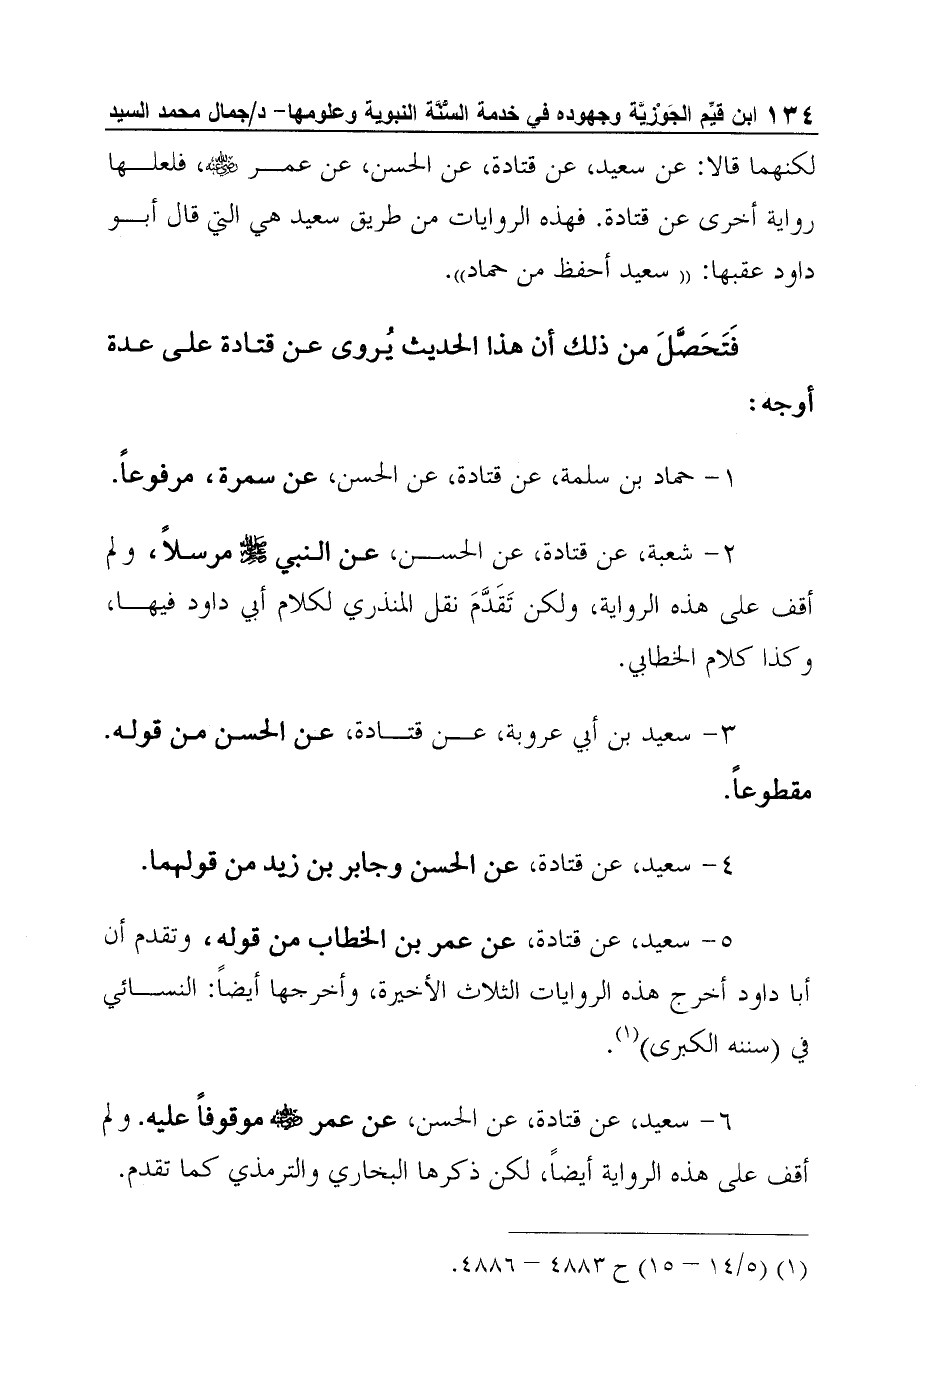 ١٣٤ ابن قيِّم الجَوْزيَّة وجهوده في خدمة السُّنَّة النبوية وعلومها- د/جمال محمد السيد
لكنهما قالا: عن سعيد، عن قتادة، عن الحسن، عن عمر ﷺ، فلعلها
رواية أخرى عن قتادة. فهذه الروايات من طريق سعيد هي التي قال أبو
داود عقبها: (( سعيد أحفظ من حماد)).
فَتَحَصَّلَ من ذلك أن هذا الحديث يُروى عن قتادة على عدة
أوجه:
١- حماد بن سلمة، عن قتادة، عن الحسن، عن سمرة، مرفوعاً.
٢- شعبة، عن قتادة، عن الحسن، عن النبي ﷺ مرسلاً، ولم
أقف على هذه الرواية، ولكن تَقَدَّمَ نقل المنذري لكلام أبي داود فيها،
وكذا كلام الخطابي.
٣- سعيد بن أبي عروبة، عن قتادة، عن الحسن من قوله.
مقطوعاً.
٤- سعيد، عن قتادة، عن الحسن وجابر بن زيد من قولهما.
٥- سعيد، عن قتادة، عن عمر بن الخطاب من قوله، وتقدم أن
أبا داود أخرج هذه الروايات الثلاث الأخيرة، وأخرجها أيضاً: النسائي
في (سننه الكبرى)(١).
٦- سعيد، عن قتادة، عن الحسن، عن عمر رضي الله عنه موقوفاً عليه. ولم
أقف على هذه الرواية أيضاً، لكن ذكرها البخاري والترمذي كما تقدم.
(١) (١٤/٥ – ١٥) ح ٤٨٨٣ – ٤٨٨٦.